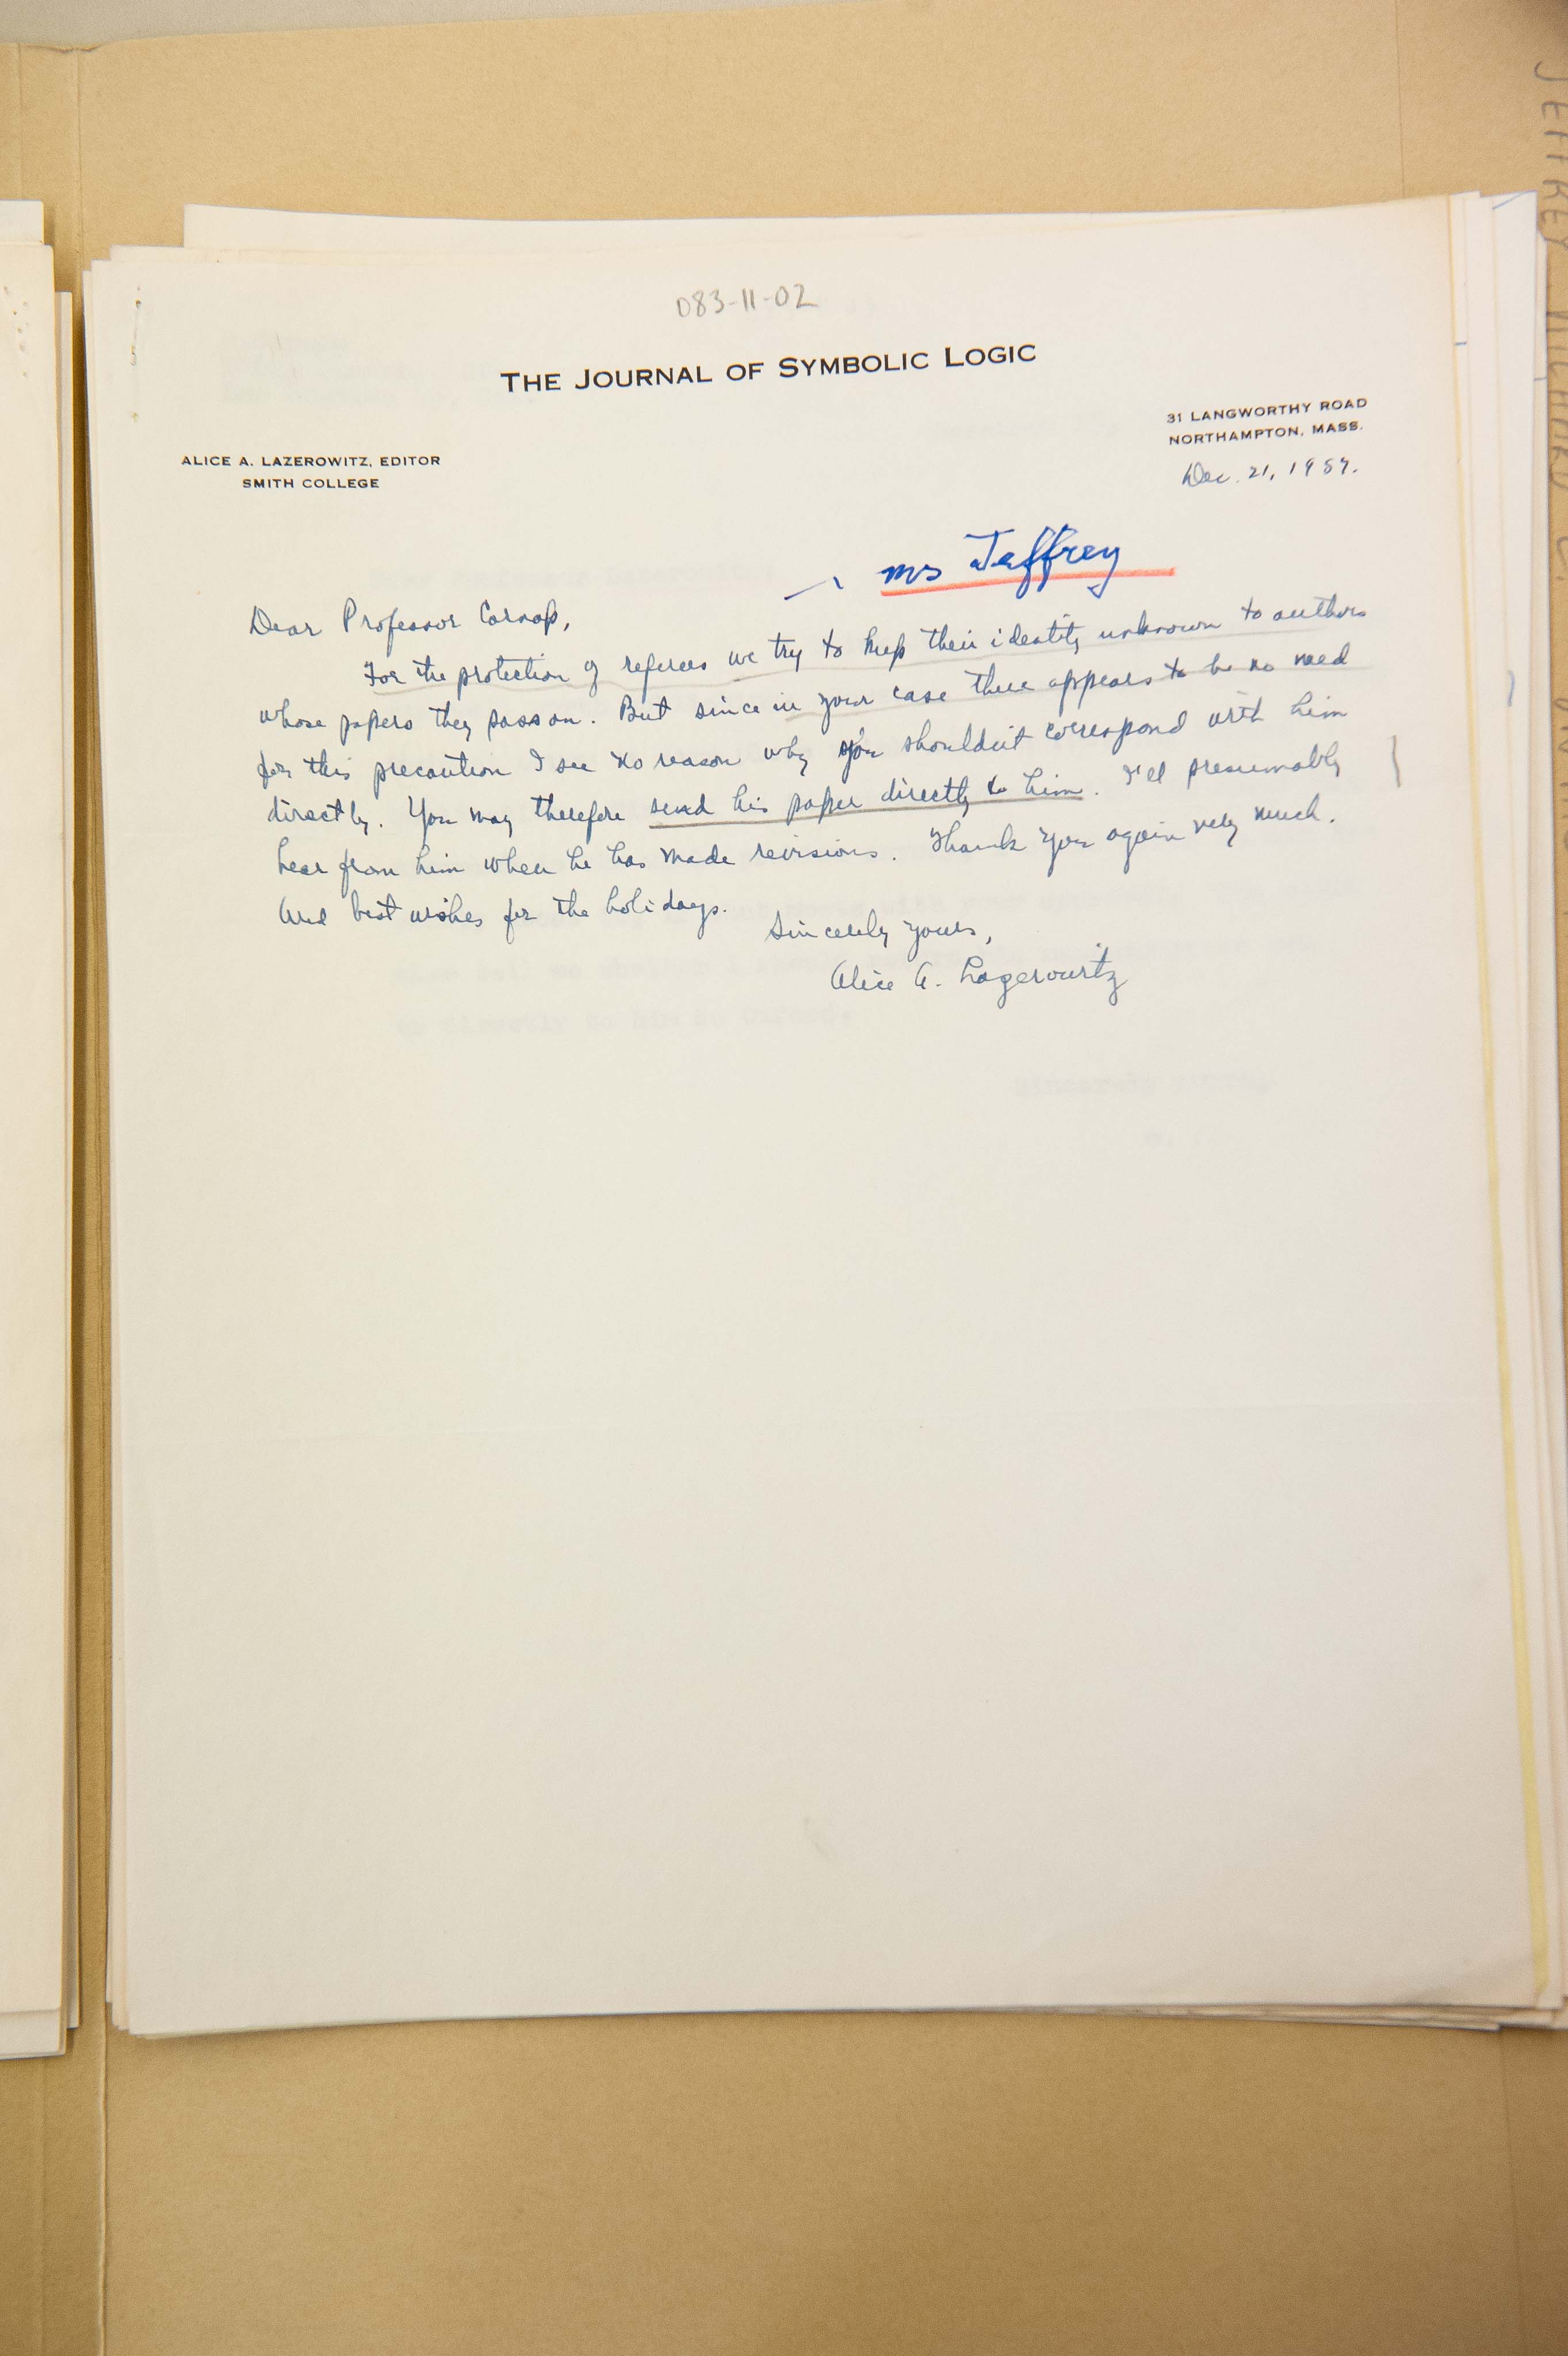 083-11-02
THE JOURNAL OF SYMBOLIC LOGIC
31 LANGWORTHY ROAD
NORTHAMPTON, MASS.
ALICE A. LAZEROWITZ, EDITOR
SMITH COLLEGE
Dec. 21, 1957.
ms Jeffrey
Dear Professor Carnap,
For the protection of referees we try to keep their identity unknown to authors
whose papers they pass on. But since in your case there appears to be no need
for this precaution I see no reason why you shouldn't correspond with him
directly. You may therefore send his paper directly to him. I'll presumably
hear from him when he has made revisions. Thank you again very much.
And best wishes for the holidays.
Sincerely yours,
Alice A. Lazerowitz
JEFFREY, RICHARD C.